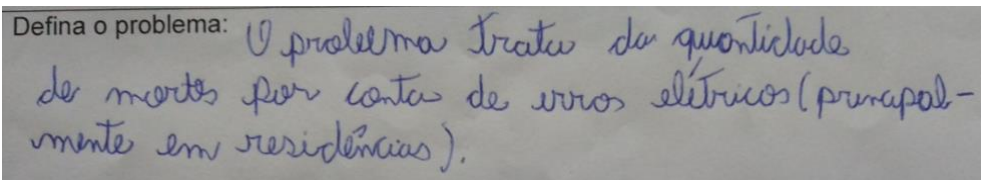 Defina o problema: O problema trata da quantidade
de mortes por conta de erros elétricos (principal-
mente em residências).